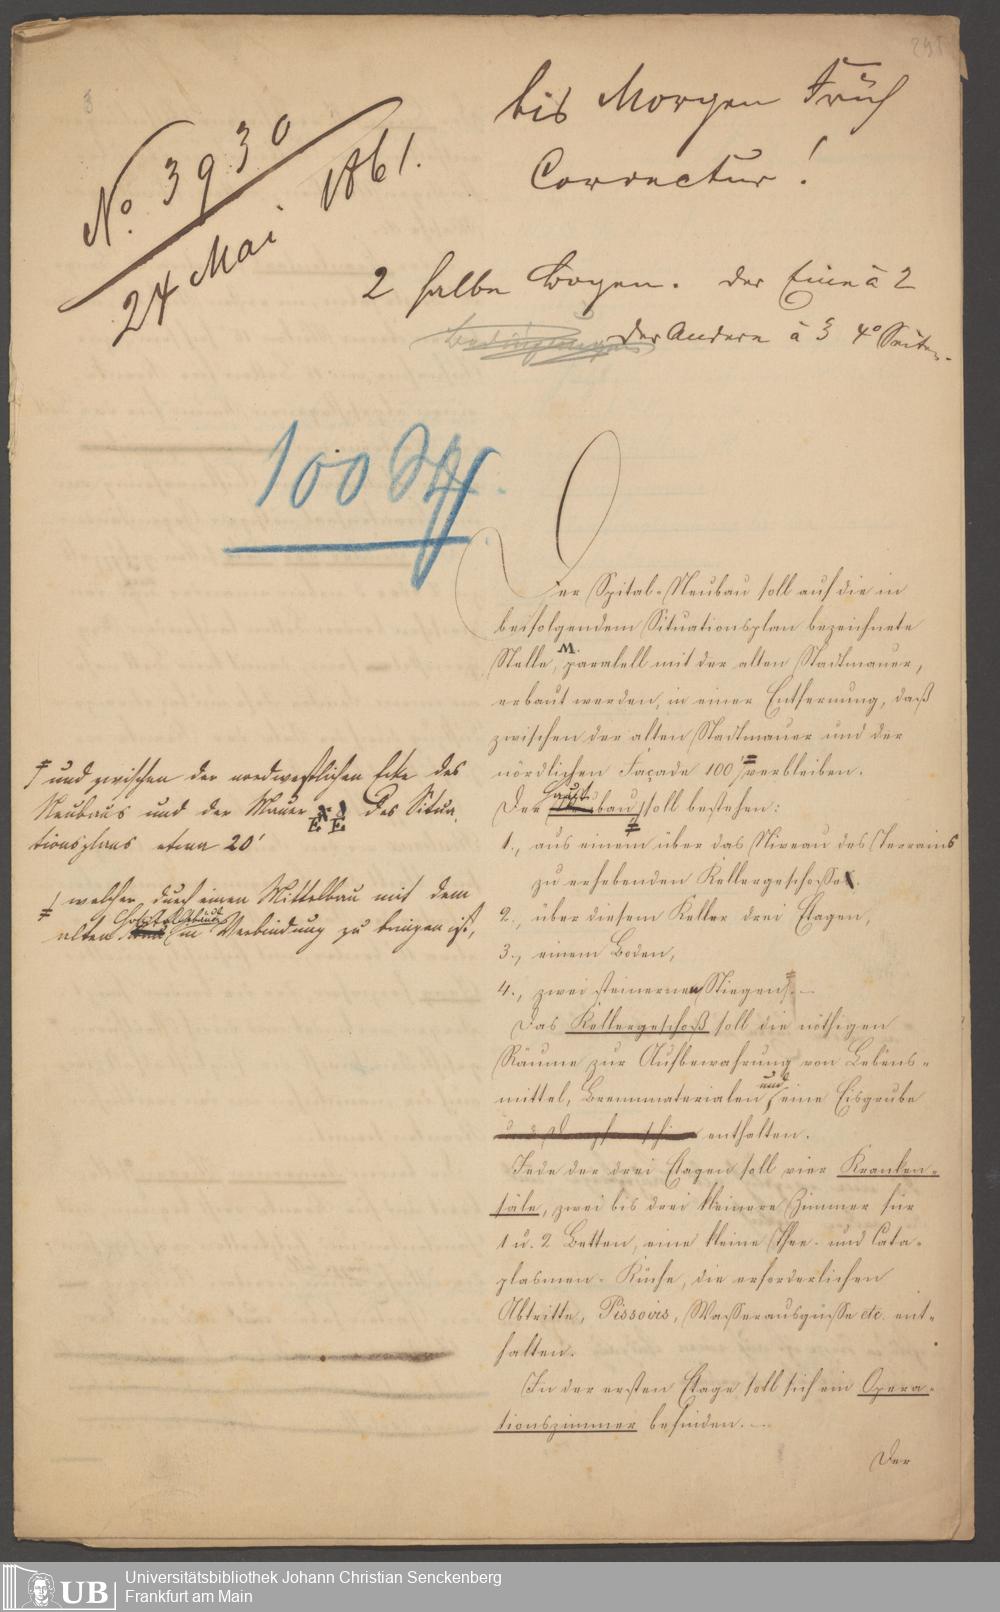 bis Morgen Früh
Correctur!
No. 3930
24 Mai 1861.
2 halbe Bogen. der Eine à 2
Bedingungen der Andere à 3 4º Seiten.
100
Der Spital-Neubau soll auf die in
beifolgendem Situationsplan bezeichnete
Stelle, M. paralell mit der alten Stadtmauer,
erbaut werden, in einer Entfernung, daß
zwischen der alten Stadtmauer und der
nördlichen Façade 100' verbleiben.
Der Hauptbau soll bestehen:
1., aus einem über das Niveau des Terrains
zu erhebenden Kellergeschosse.
2., über diesem Keller drei Etagen,
3., einem Boden,
4., zwei steinernen Stiegen. —
Das Kellergeschoß soll die nöthigen
Räume zur Aufbewahrung von Lebens-
mittel, Brennmaterialen und eine Eisgrube
und Dampfmaschine enthalten.
Jede der drei Etagen soll vier Kranken-
säle, zwei bis drei kleinere Zimmer für
1 u. 2 Betten, eine kleine Thee- und Cata-
plasmen-Küche, die erforderlichen
Abtritte, Pissoirs, Wasserausgüsse etc. ent-
halten.
In der ersten Etage soll sich ein Opera-
tionszimmer befinden. —
Der
und zwischen der nordwestlichen Ecke des
Neubaus und der Mauer des Situa-
tionsplans etwa 20'
welcher durch einen Mittelbau mit dem
alten Spitalgebäude in Verbindung zu bringen ist,
UB Universitätsbibliothek Johann Christian Senckenberg
Frankfurt am Main